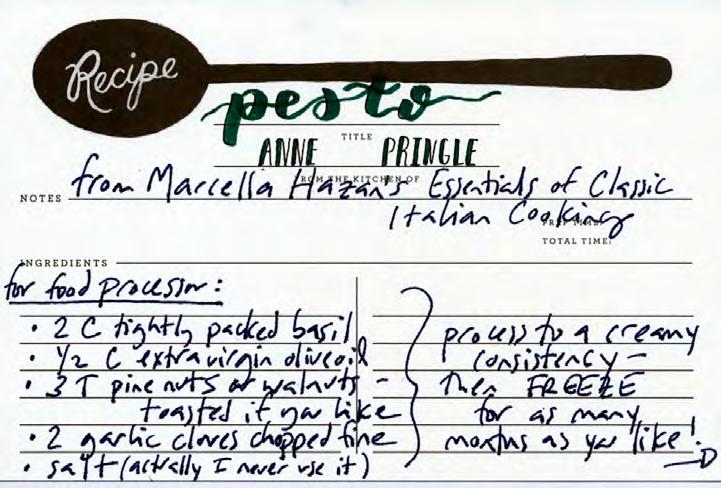 Recipe
pesto
TITLE
ANNE PRINGLE
FROM THE KITCHEN OF
NOTES from Marcella Hazan's Essentials of Classic
Italian Cooking
PREP TIME:
TOTAL TIME:
INGREDIENTS
for food processor:
• 2 C tightly packed basil
• 1/2 C extra virgin olive oil
• 3 T pine nuts or walnuts -
toasted if you like
• 2 garlic cloves chopped fine
• salt (actually I never use it)
process to a creamy
consistency -
then FREEZE
for as many
months as you like!